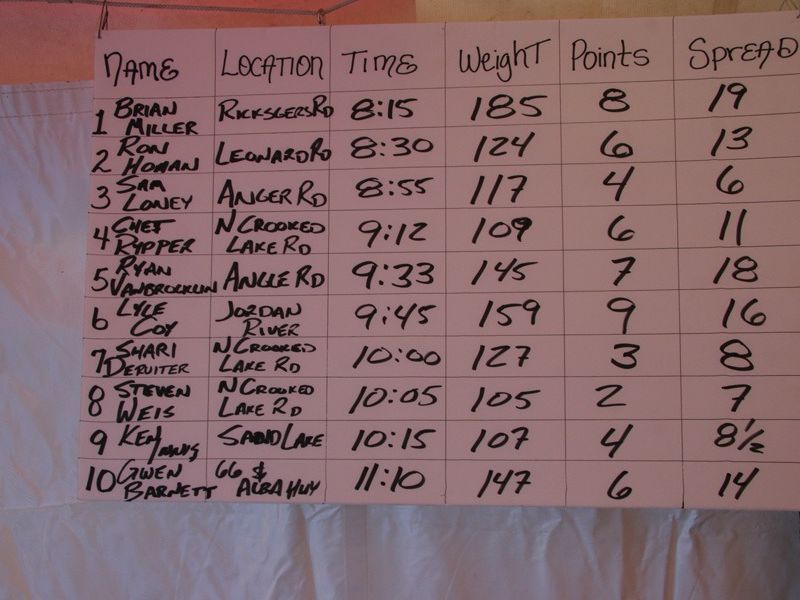 NAME LOCATION TIME Weight Points SPREAD
1 BRIAN MILLER RICKSGERS RD 8:15 185 8 19
2 RON HOMAN LEONARD RD 8:30 124 6 13
3 SAM LONEY ANGER RD 8:55 117 4 6
4 CHET RYPPER N CROOKED LAKE RD 9:12 109 6 11
5 RYAN VANBROCKLIN ANGLE RD 9:33 145 7 18
6 LYLE COY JORDAN RIVER 9:45 159 9 16
7 SHARI DERUITER N CROOKED LAKE RD 10:00 127 3 8
8 STEVEN WEIS N CROOKED LAKE RD 10:05 105 2 7
9 KEN SAND LAKE 10:15 107 4 8 1/2
10 GWEN BARNETT 66 & ALBA HWY 11:10 147 6 14